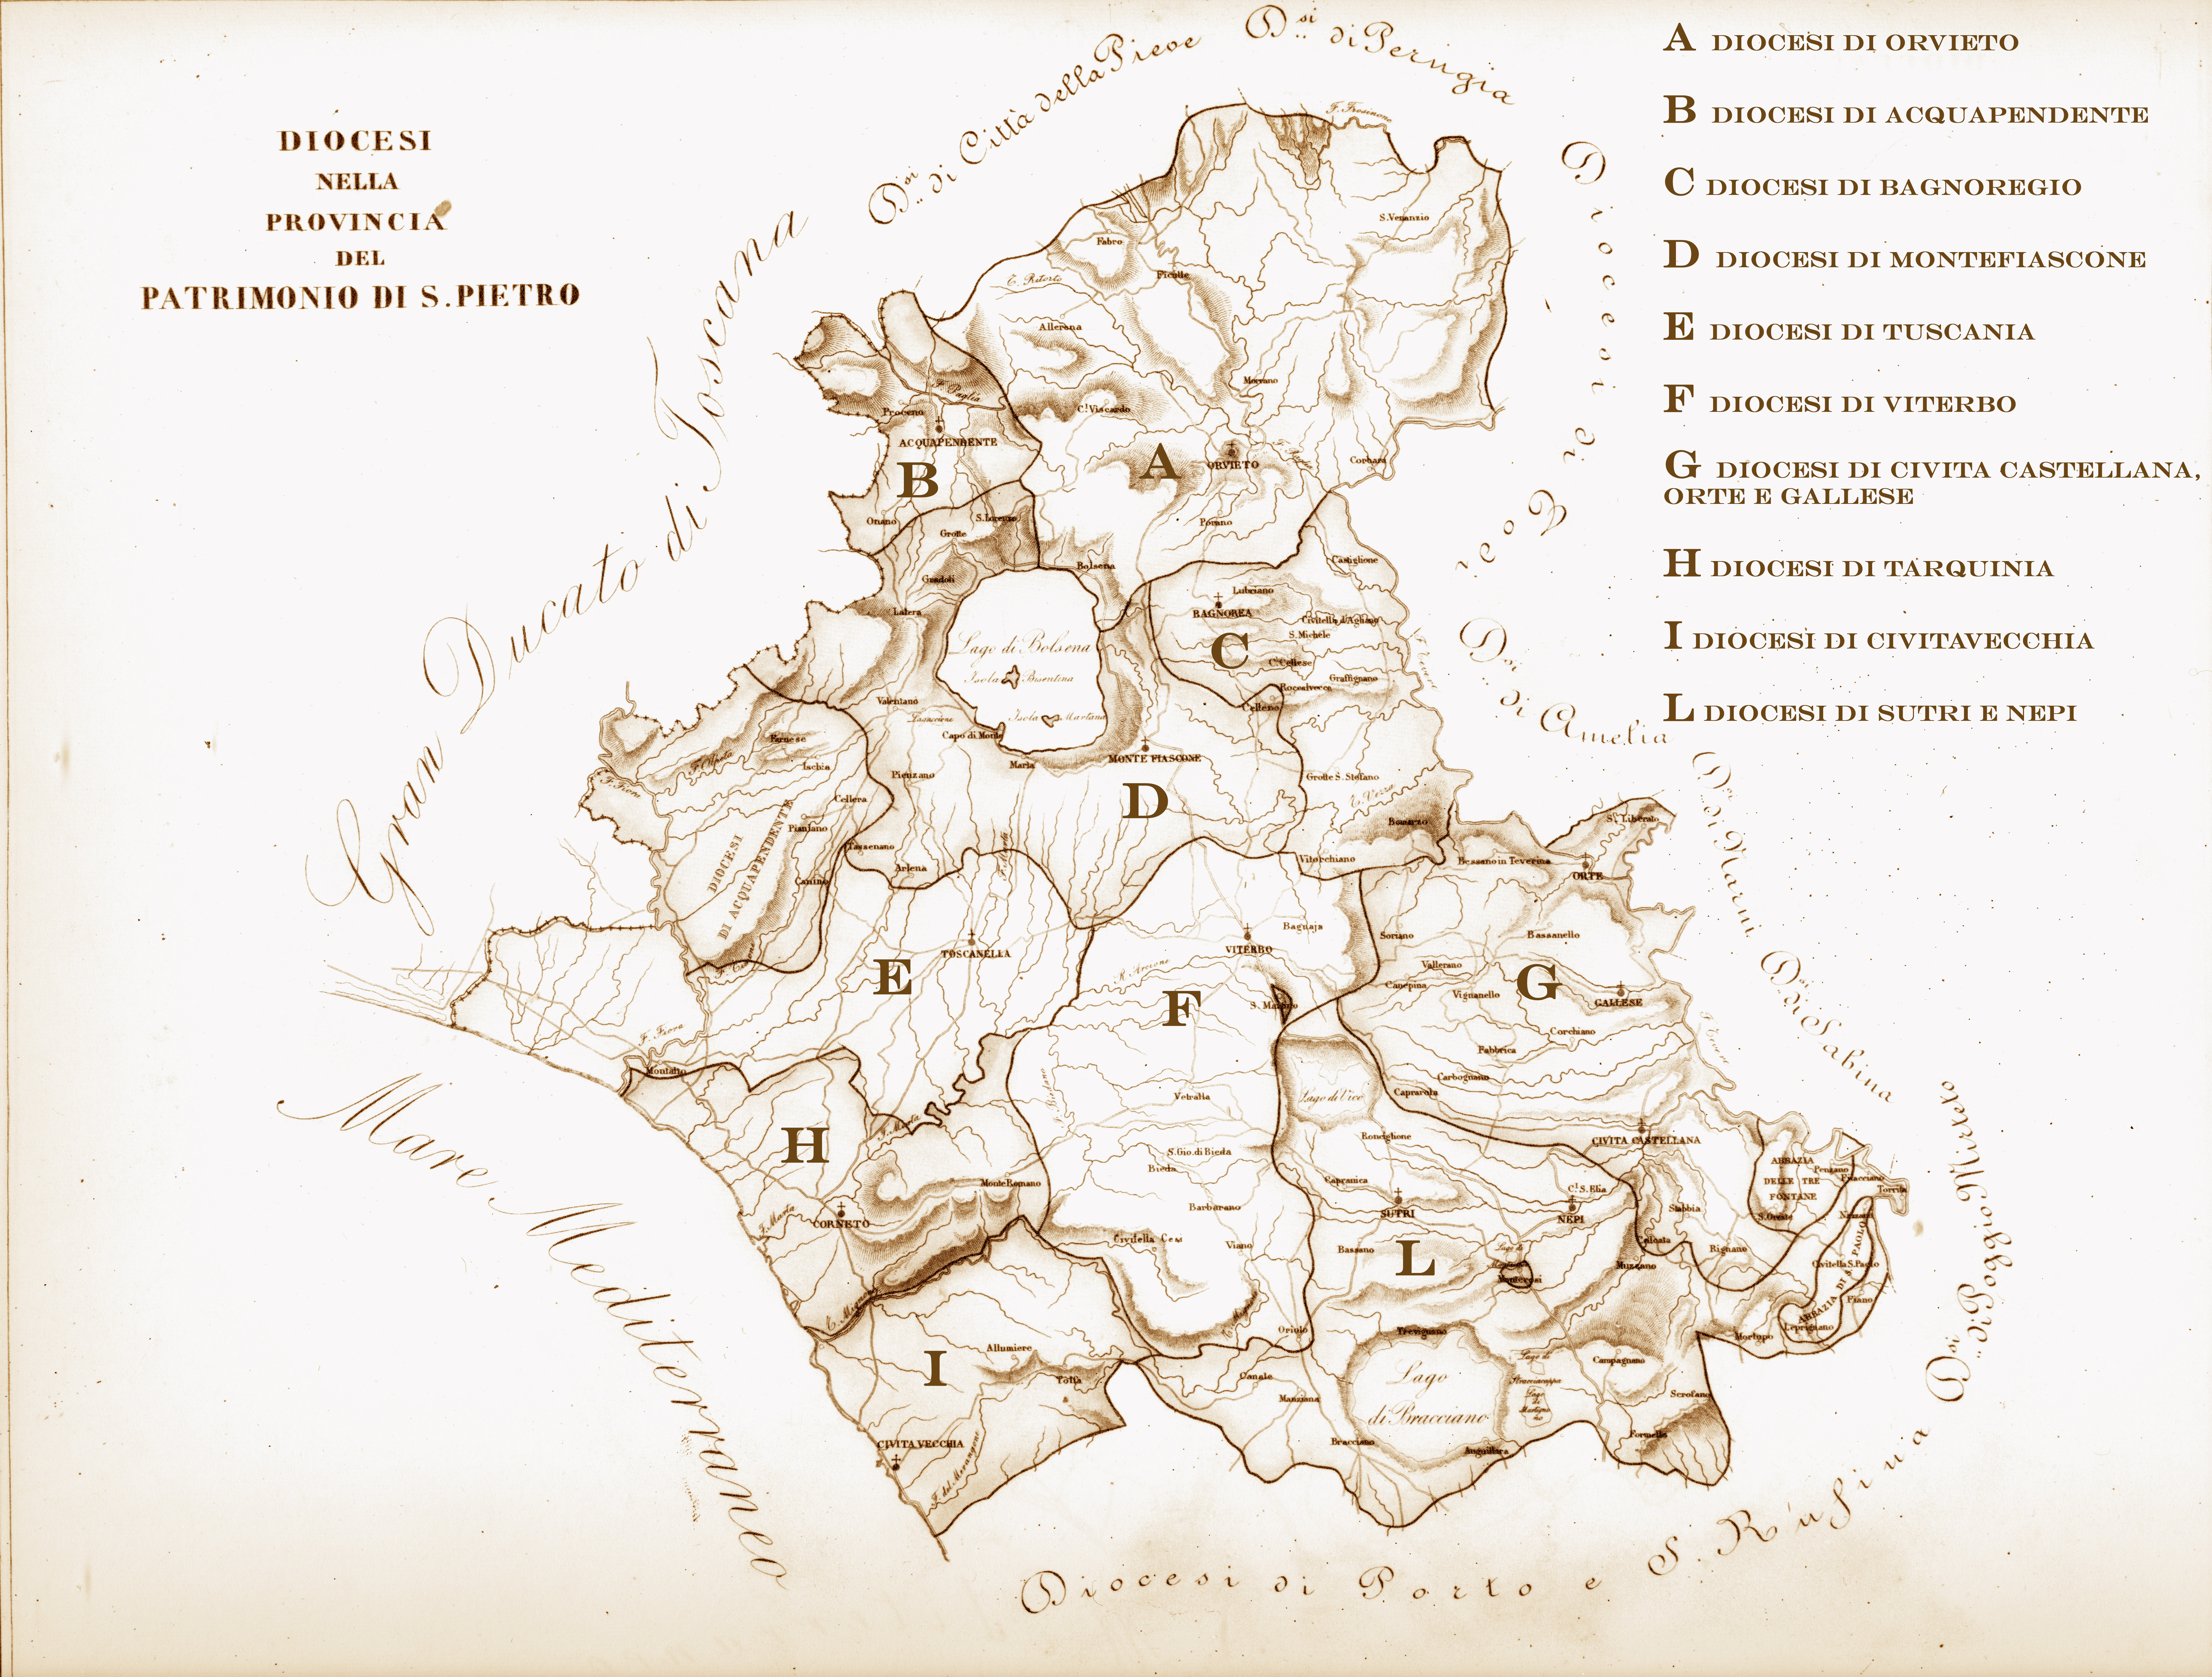 DIOCESI
NELLA
PROVINCIA
DEL
PATRIMONIO DI S. PIETRO
A DIOCESI DI ORVIETO
B DIOCESI DI ACQUAPENDENTE
C DIOCESI DI BAGNOREGIO
D DIOCESI DI MONTEFIASCONE
E DIOCESI DI TUSCANIA
F DIOCESI DI VITERBO
G DIOCESI DI CIVITA CASTELLANA,
ORTE E GALLESE
H DIOCESI DI TARQUINIA
I DIOCESI DI CIVITAVECCHIA
L DIOCESI DI SUTRI E NEPI
Dsi.. di Città della Pieve
Dsi.. di Perugia
Diocesi di Todi
Dsi.. di Amelia
Dsi.. di Narni
Dsi.. di Sabina
Dsi.. Poggio Mirteto
Diocesi di Porto e S. Rufina
Gran Ducato di Toscana
Mare Mediterraneo
S. Venanzio
Fabro
Ficulle
Allerona
Morrano
F. Paglia
Proceno
ACQUAPENDENTE
B
Onano
C. Viscardo
A
ORVIETO
Corbara
Porano
S. Lorenzo
Grotte
Gradoli
Latera
Bolsena
Castiglione
Lubriano
BAGNOREA
Civitella d'Agliano
S. Michele
C
C. Cellese
Graffignano
Roccalvecce
Celleno
Lago di Bolsena
Isola Bisentina
Isola Martana
Valentano
Capo di Monte
Marta
MONTE FIASCONE
D
Grotte S. Stefano
T. Vezza
Bomarzo
Vitorchiano
Farnese
F. Olpeta
Ischia
F. Fiora
Cellera
Pianzano
Piansano
DIOCESI
DI ACQUAPENDENTE
Canino
Tessenano
Arlena
F. Marta
S. Liberato
Bassano in Teverina
ORTE
E
TOSCANELLA
F. Fiora
Montalto
VITERBO
Bagnaja
F
S. Martino
Soriano
Bassanello
Vallerano
Canepina
Vignanello
G
GALLESE
Corchiano
Fabbrica
Carbognano
Caprarola
F. Tevere
Lago di Vico
Vetralla
S. Gio. di Bieda
Bieda
Barbarano
Viano
Civitella Cesi
H
F. Marta
Monte Romano
CORNETO
F. Marta
Ronciglione
Capranica
SUTRI
C. S. Elia
NEPI
CIVITA CASTELLANA
L
Bassano
Monterosi
Stabbia
Calcata
Mazzano
Rignano
ABBAZIA
DELLE TRE
FONTANE
S. Oreste
Ponzano
Filacciano
Torrita
Nazzano
ABBAZIA DI S. PAOLO
Civitella S. Paolo
Fiano
Leprignano
Morlupo
I
Allumiere
Tolfa
CIVITA VECCHIA
Oriolo
Canale
Manziana
Trevignano
Lago
di Bracciano
Bracciano
Anguillara
Campagnano
Scrofano
Formello